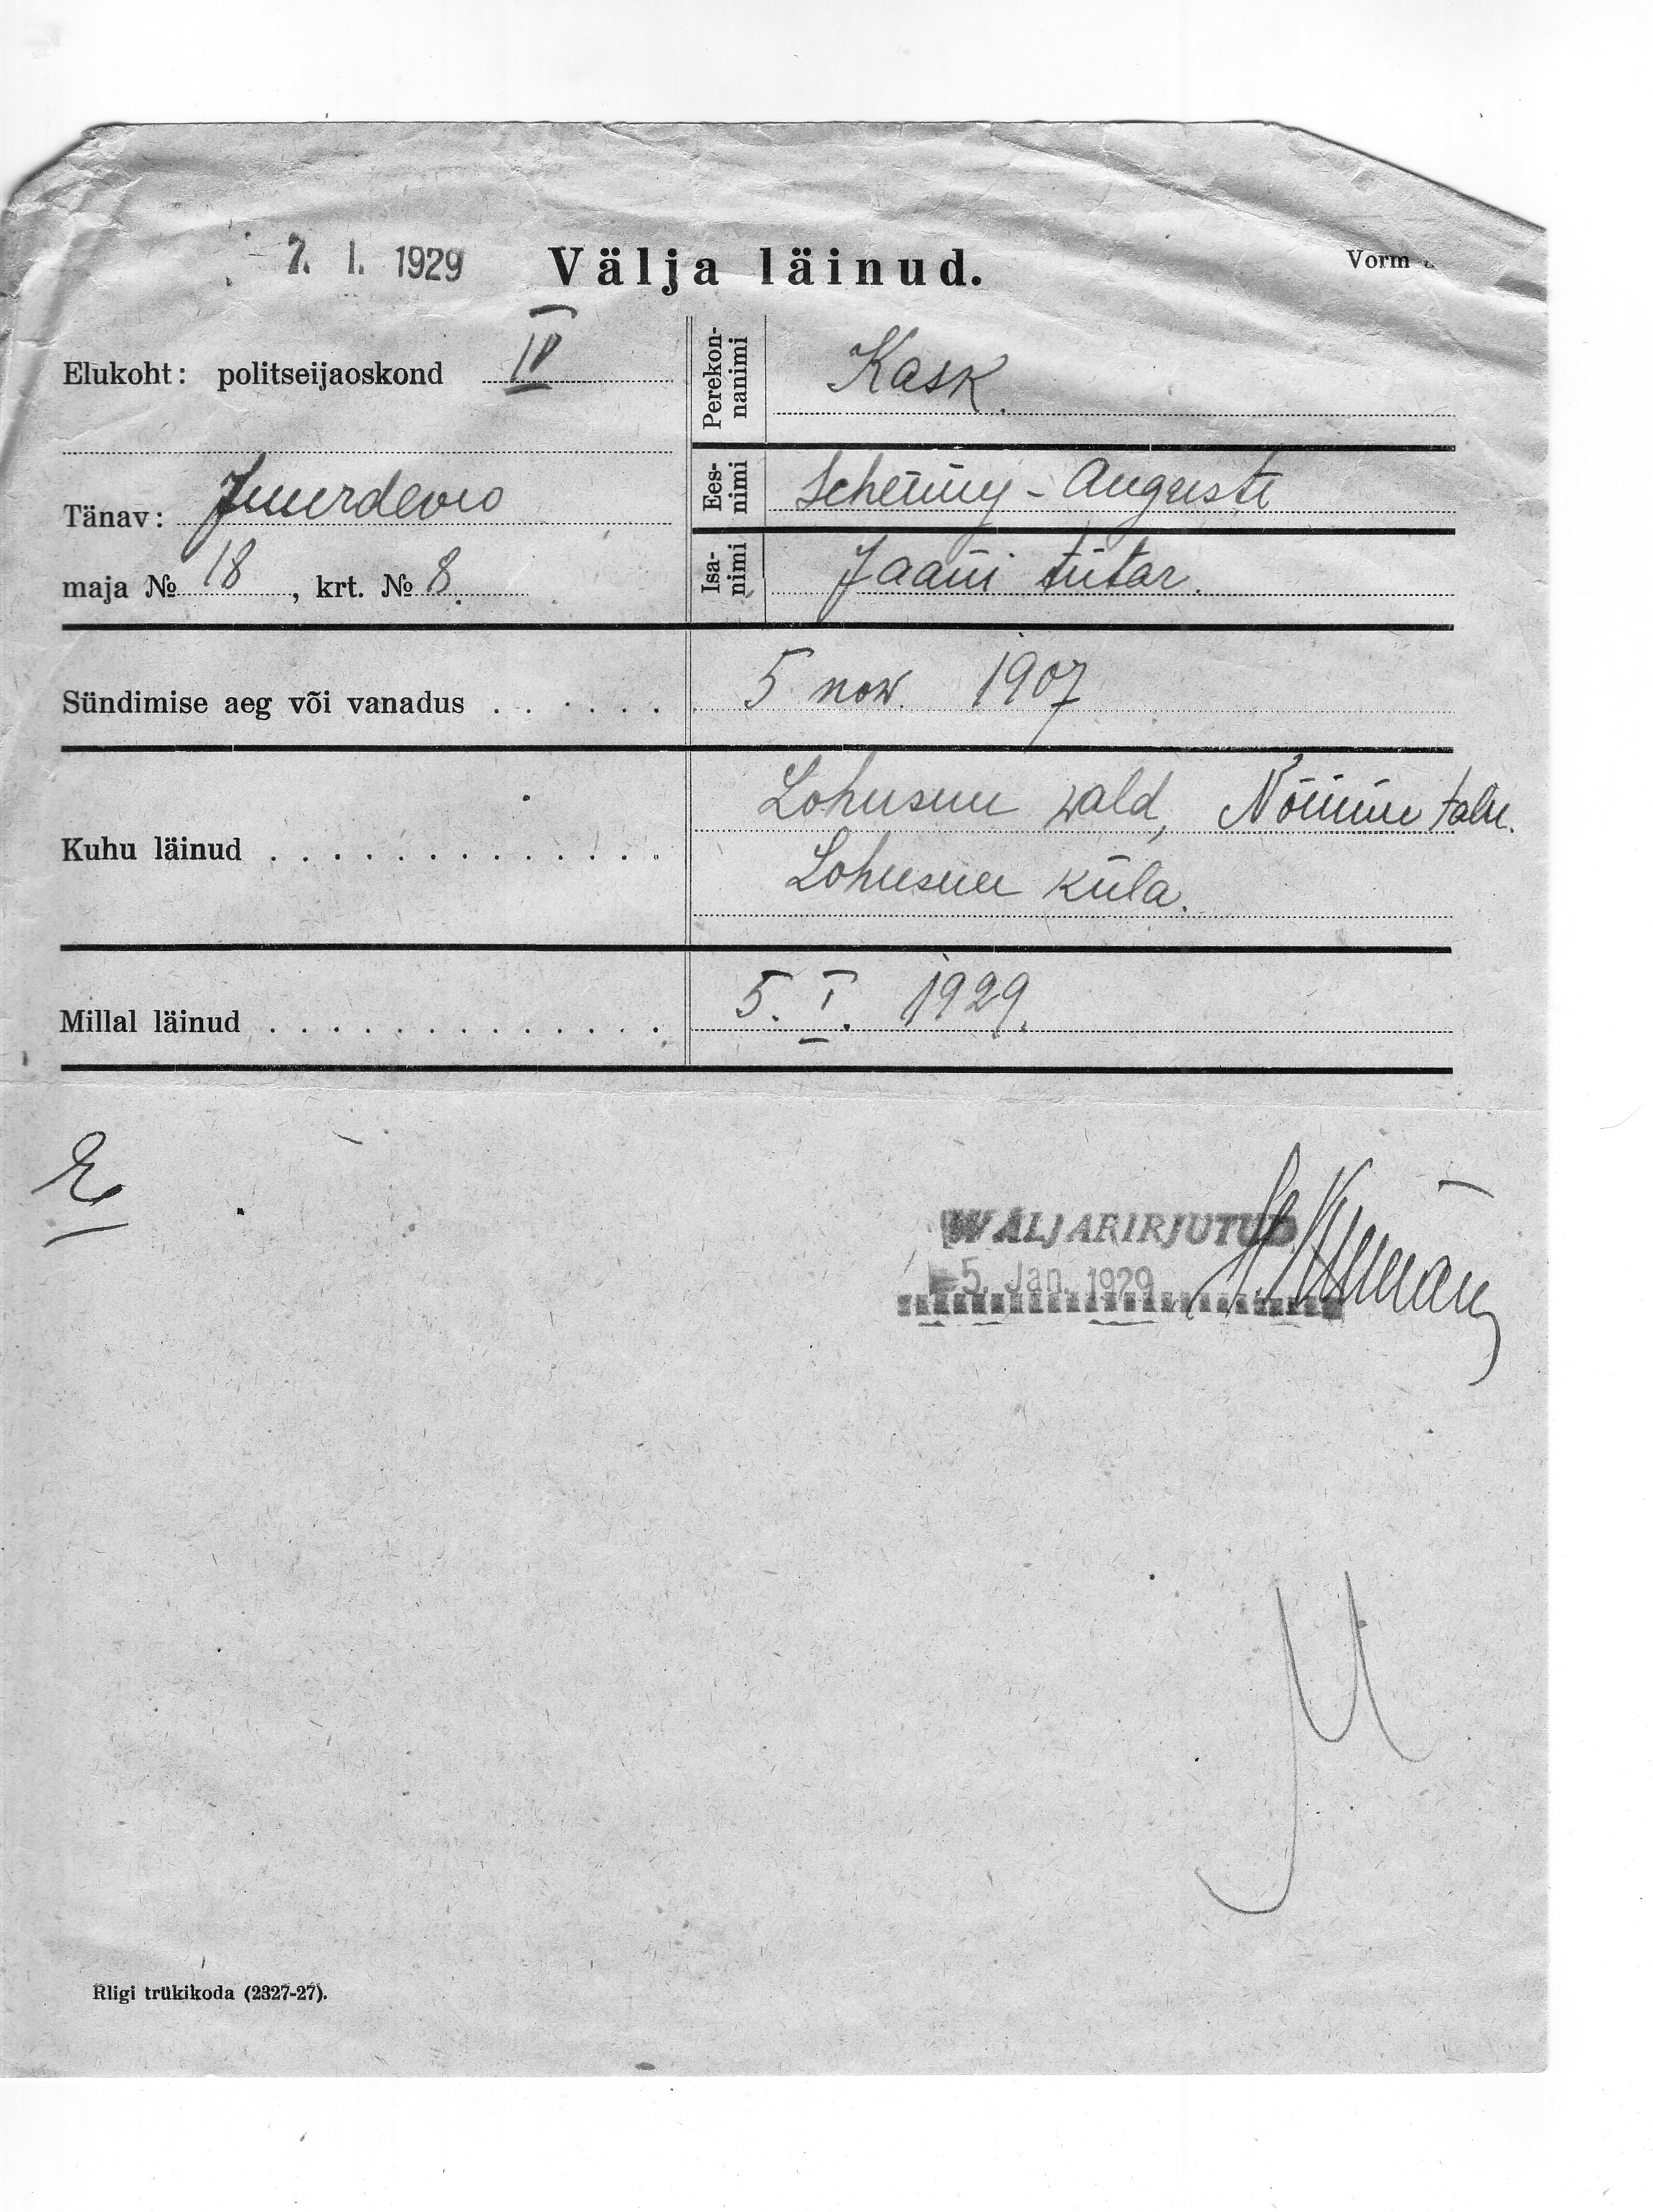 7. I. 1929 Välja läinud. Vorm
Elukoht: politseijaoskond IV
Perekon-
nanimi Kask.
Tänav: Juurdeveo
Ees-
nimi Schenny-Auguste
maja № 18, krt. № 8.
Isa-
nimi Jaani tütar.
Sündimise aeg või vanadus . . . . . . 5 now. 1907
Kuhu läinud . . . . . . . . . . . . . Lohusuu wald, Nõmme talu.
Lohusuu küla.
Millal läinud . . . . . . . . . . . . . 5. I. 1929.
WÄLJAKIRJUTUD
5. Jan. 1929
Riigi trükikoda (2327-27).